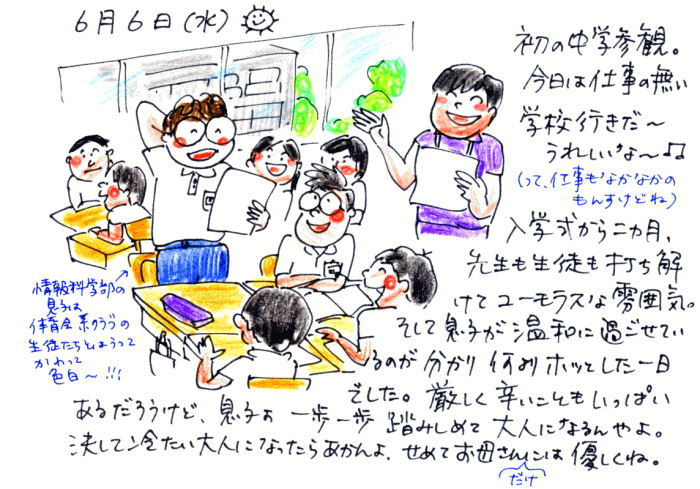 6月6日(水)
初の中学参観。
今日は仕事の無い
学校行きだ〜
うれしいな〜♫
(って、仕事もなかなかの
もんすけどね)
入学式から二ヵ月、
先生も生徒も打ち解
けてユーモラスな雰囲気。
そして息子が温和に過ごせてい
るのが分かり何よりホッとした一日
でした。厳しく辛いこともいっぱい
あるだろうけど、息子よ一歩一歩踏みしめて大人になるんやよ。
決して冷たい大人になったらあかんよ、せめてお母さんには優しくね。
だけ
情報科学部の
息子は
体育会系クラブの
生徒たちとはうって
かわって
色白〜!!!